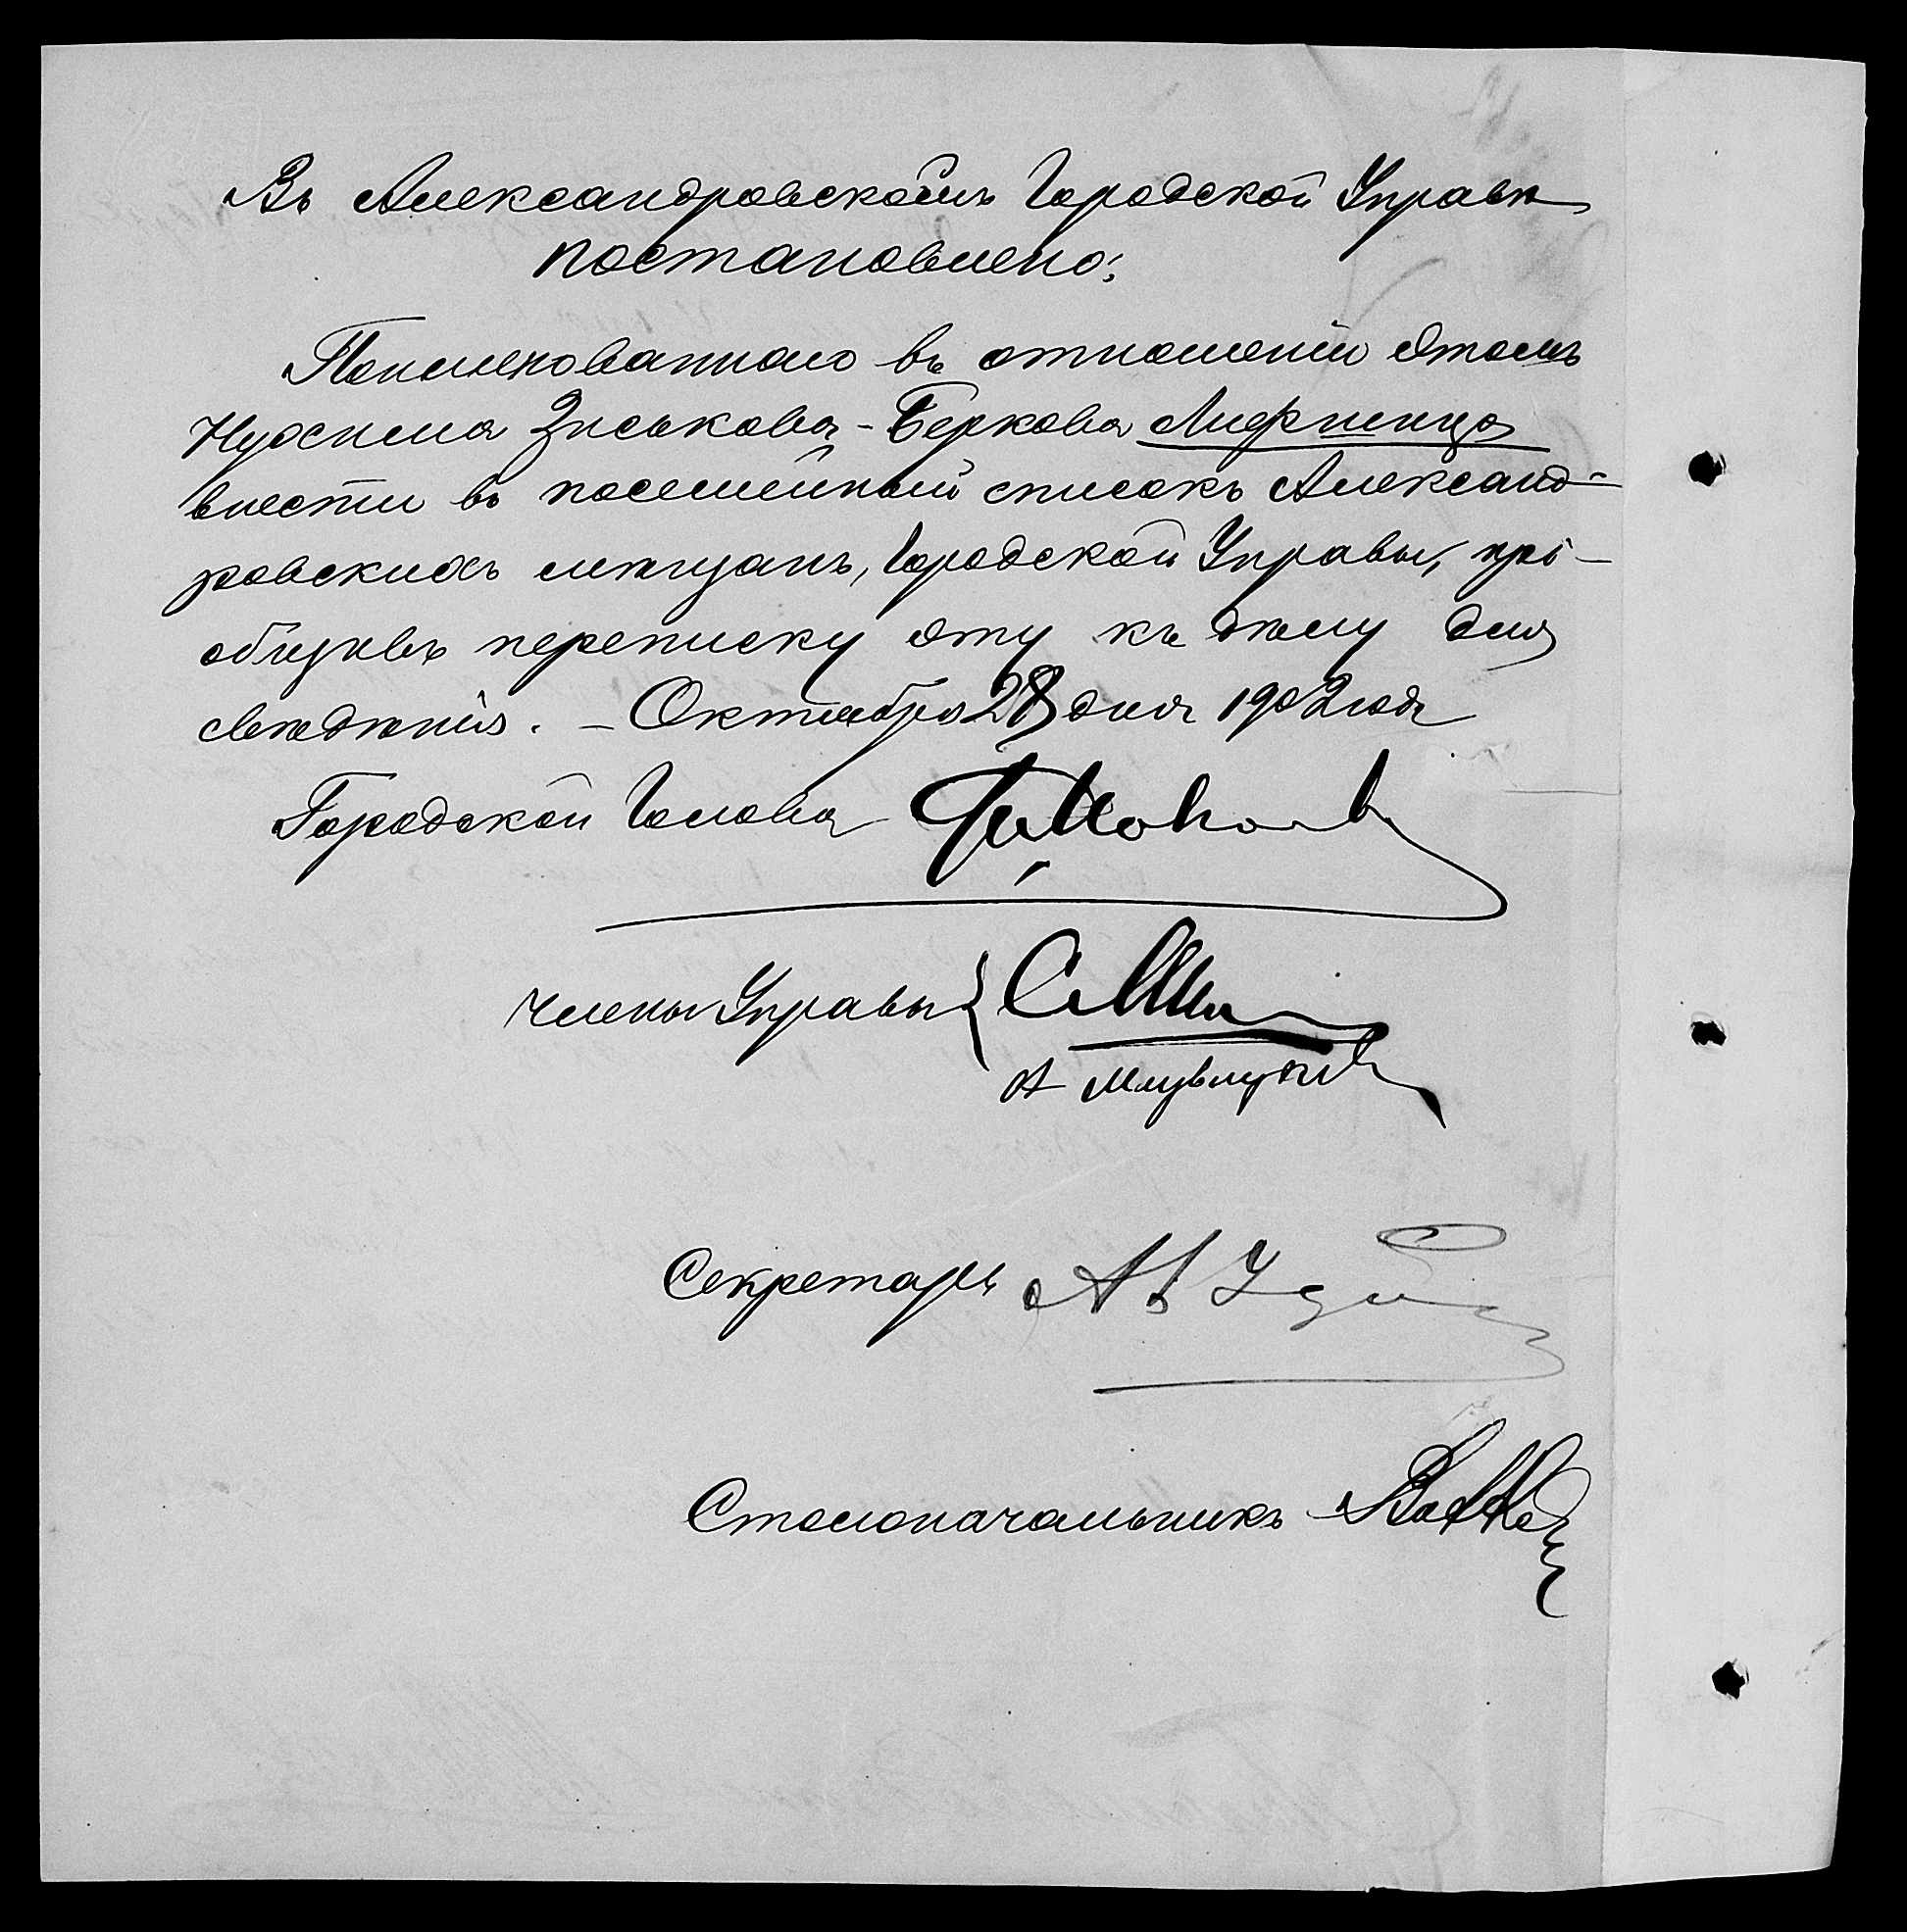 Въ Александровской Городской Управѣ
постановлено:
Поименованнаго въ отношеніи этомъ
Нусима Зиськова-Беркова Лифшица
внести въ посемейный списокъ Александ-
ровскихъ мѣщанъ, Городской Управы, прі-
общивъ переписку эту къ дѣлу для
свѣдѣнія. – Октября 28 дня 1902 года
Городской Голова
Члены Управы
А
Секретарь
Столоначальникъ